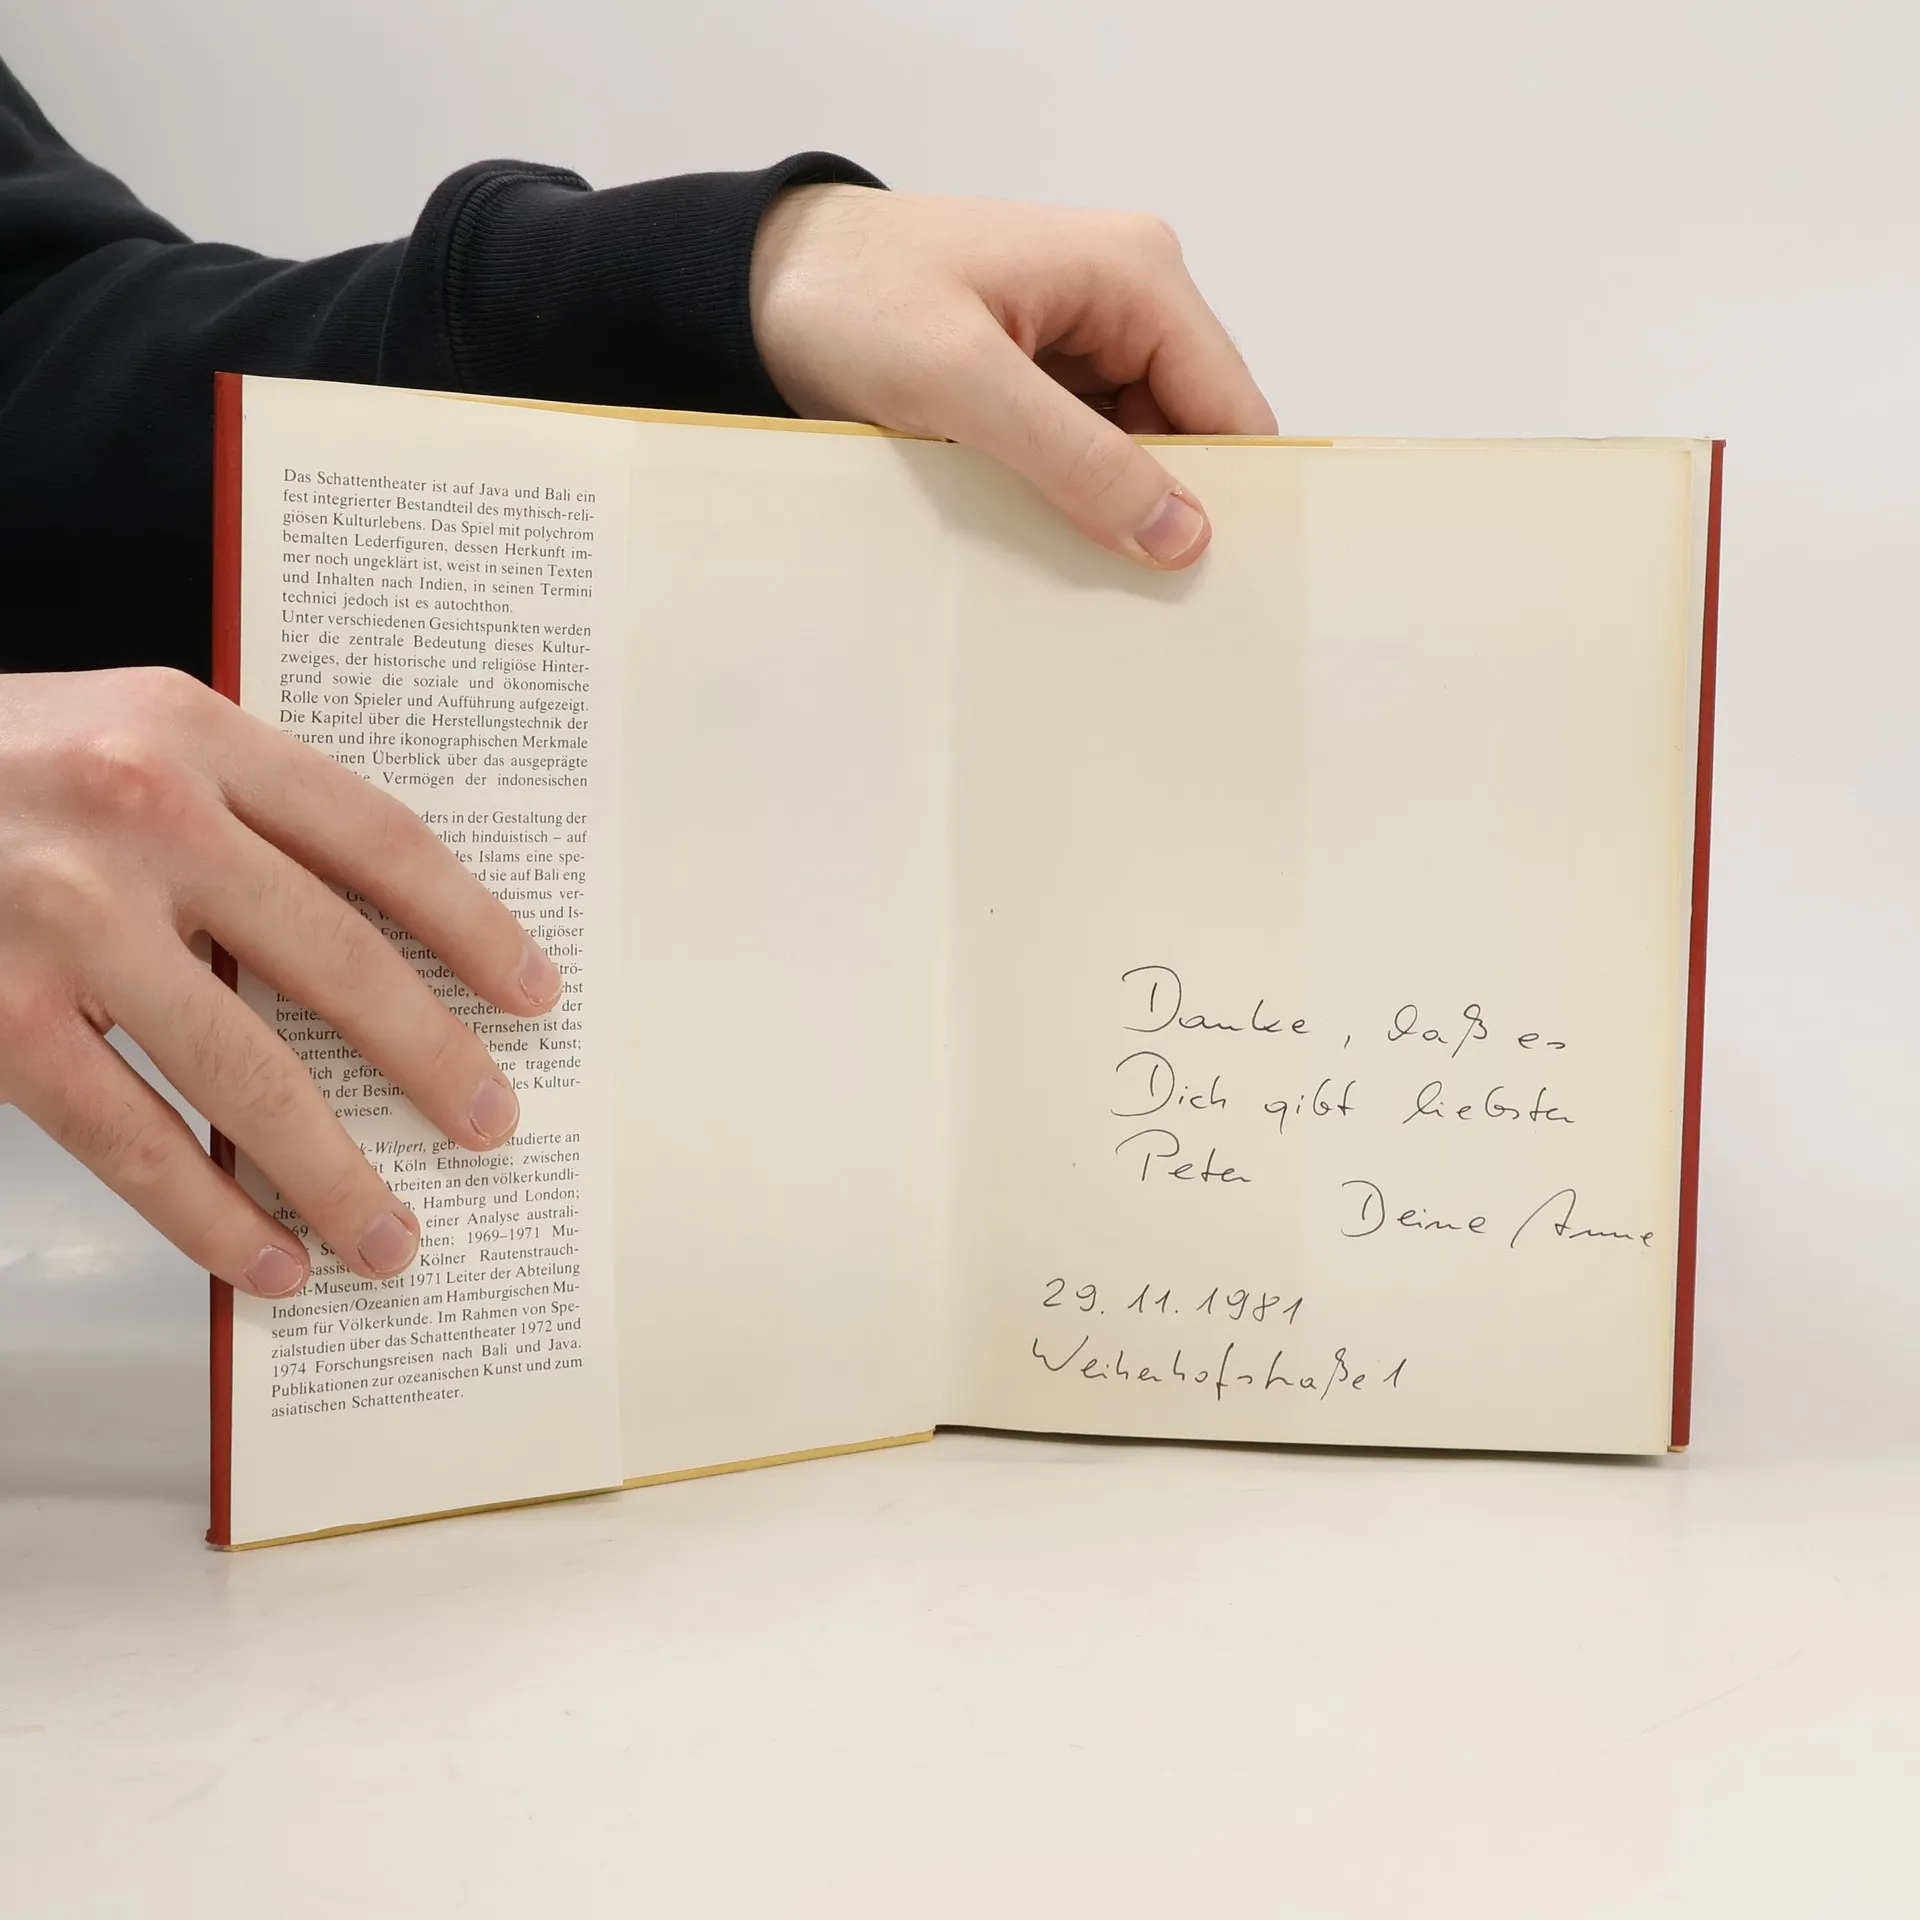 Das Schattentheater ist auf Java und Bali ein
fest integrierter Bestandteil des mythisch-reli-
giösen Kulturlebens. Das Spiel mit polychrom
bemalten Lederfiguren, dessen Herkunft im-
mer noch ungeklärt ist, weist in seinen Texten
und Inhalten nach Indien, in seinen Termini
technici jedoch ist es autochthon.
Unter verschiedenen Gesichtspunkten werden
hier die zentrale Bedeutung dieses Kultur-
zweiges, der historische und religiöse Hinter-
grund sowie die soziale und ökonomische
Rolle von Spieler und Aufführung aufgezeigt.
Die Kapitel über die Herstellungstechnik der
Figuren und ihre ikonographischen Merkmale
einen Überblick über das ausgeprägte
Vermögen der indonesischen
in der Gestaltung der
hinduistisch – auf
des Islams eine spe-
sie auf Bali eng
ver-
und Is-
religiöser
der
Fernsehen ist das
Kunst;
tragende
in der Besin
des Kultur-
-Wilpert, geb. studierte an
Köln Ethnologie; zwischen
Arbeiten an den völkerkundli-
Hamburg und London;
einer Analyse australi-
1969–1971 Mu-
Kölner Rautenstrauch-
-Museum, seit 1971 Leiter der Abteilung
Indonesien/Ozeanien am Hamburgischen Mu-
seum für Völkerkunde. Im Rahmen von Spe-
zialstudien über das Schattentheater 1972 und
1974 Forschungsreisen nach Bali und Java.
Publikationen zur ozeanischen Kunst und zum
asiatischen Schattentheater.
Danke, daß es
Dich gibt liebster
Peter
Deine Anne
29. 11. 1981
Weiherhofstraße 1